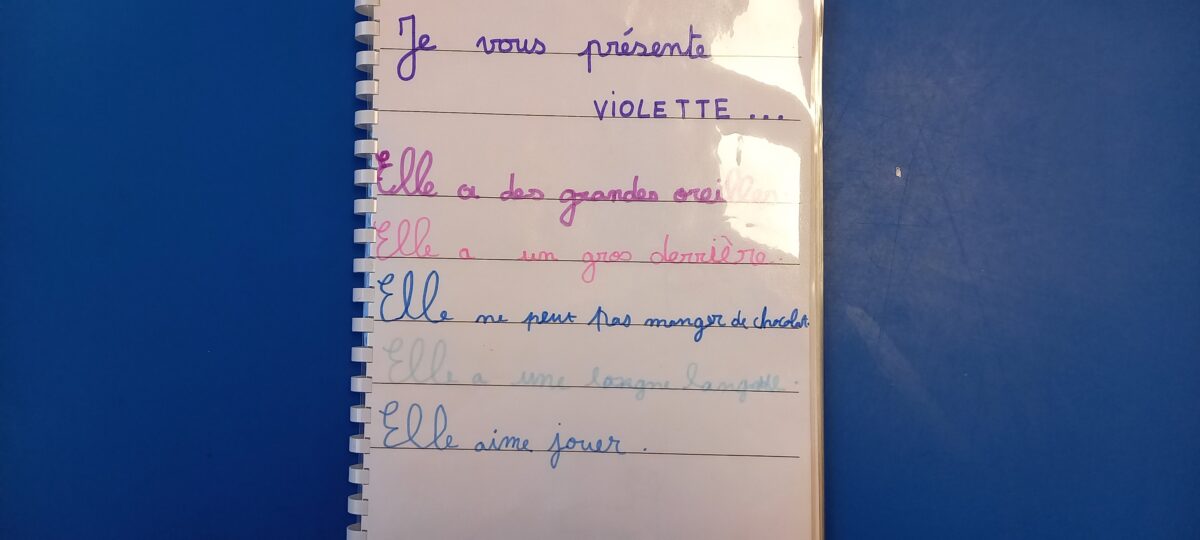 Je vous présente
VIOLETTE ...
Elle a des grandes oreilles.
Elle a un gros derrière.
Elle ne peut pas manger de chocolat.
Elle a une longue langue.
Elle aime jouer.